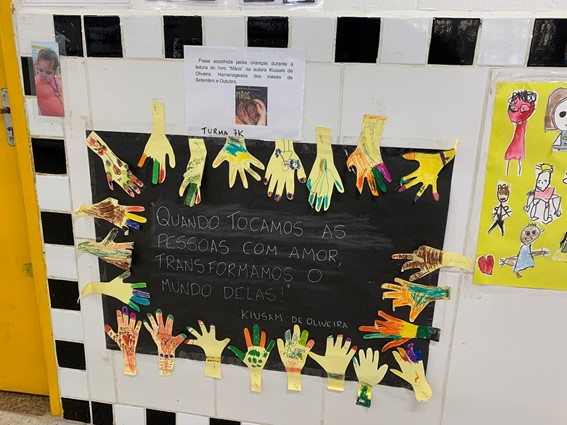 Frase escolhida pelas crianças durante a
leitura do livro "Mãos" da autora Kiusam de
Oliveira. Homenageada dos meses de
Setembro e Outubro.
MÃOS
TURMA 7K
QUANDO TOCAMOS AS
PESSOAS COM AMOR,
TRANSFORMAMOS O
MUNDO DELAS!"
KIUSAM DE OLIVEIRA